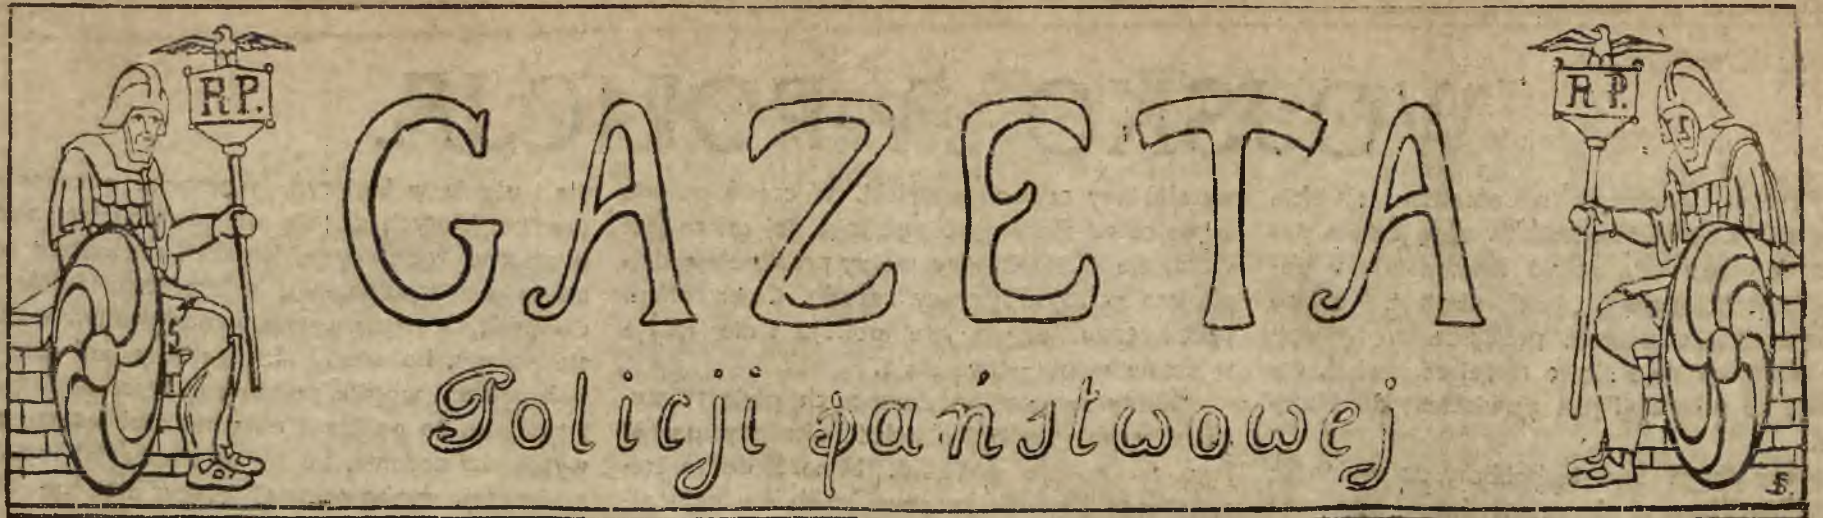 R.P.
GAZETA
R P.
Policji państwowej